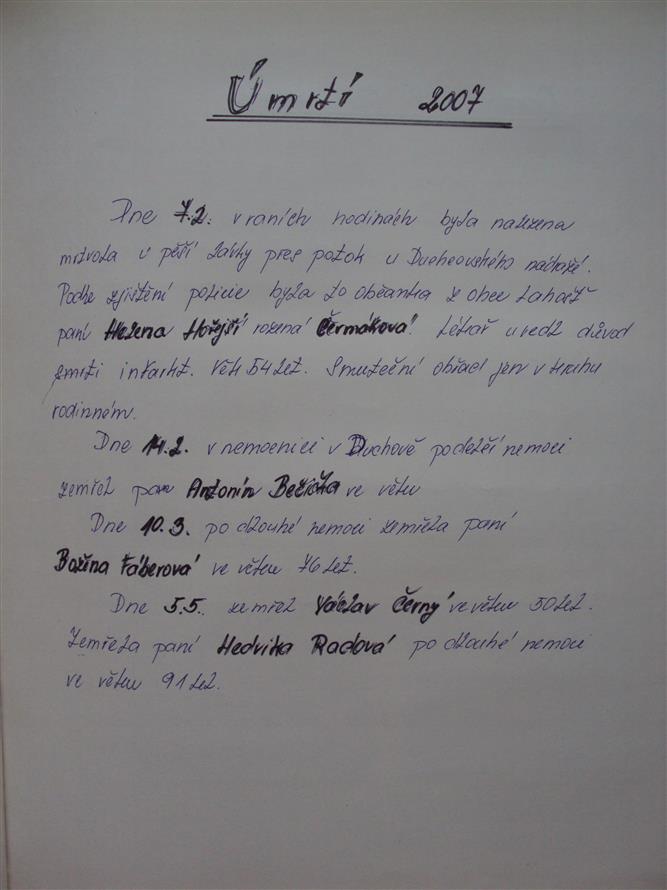 Úmrtí 2007
Dne 7.2. v raních hodinách byla nalezena
mrtvola u pěší lávky přes potok u Duchcovského nádraží.
Podle zjištění policie byla to občanka z obce Lahošť
paní Helena Hořejší rozená Čermáková. Lékař uvedl důvod
smrti infarkt. Věk 54 let. Smuteční obřad jen v kruhu
rodinném.
Dne 14.2. v nemocnici v Duchově po delší nemoci
zemřel pan Antonín Bečička ve věku
Dne 10.3. po dlouhé nemoci zemřela paní
Božena Fáberová ve věku 76 let.
Dne 5.5. zemřel Václav Černý ve věku 50 let.
Zemřela paní Hedvika Radová po dlouhé nemoci
ve věku 91 let.